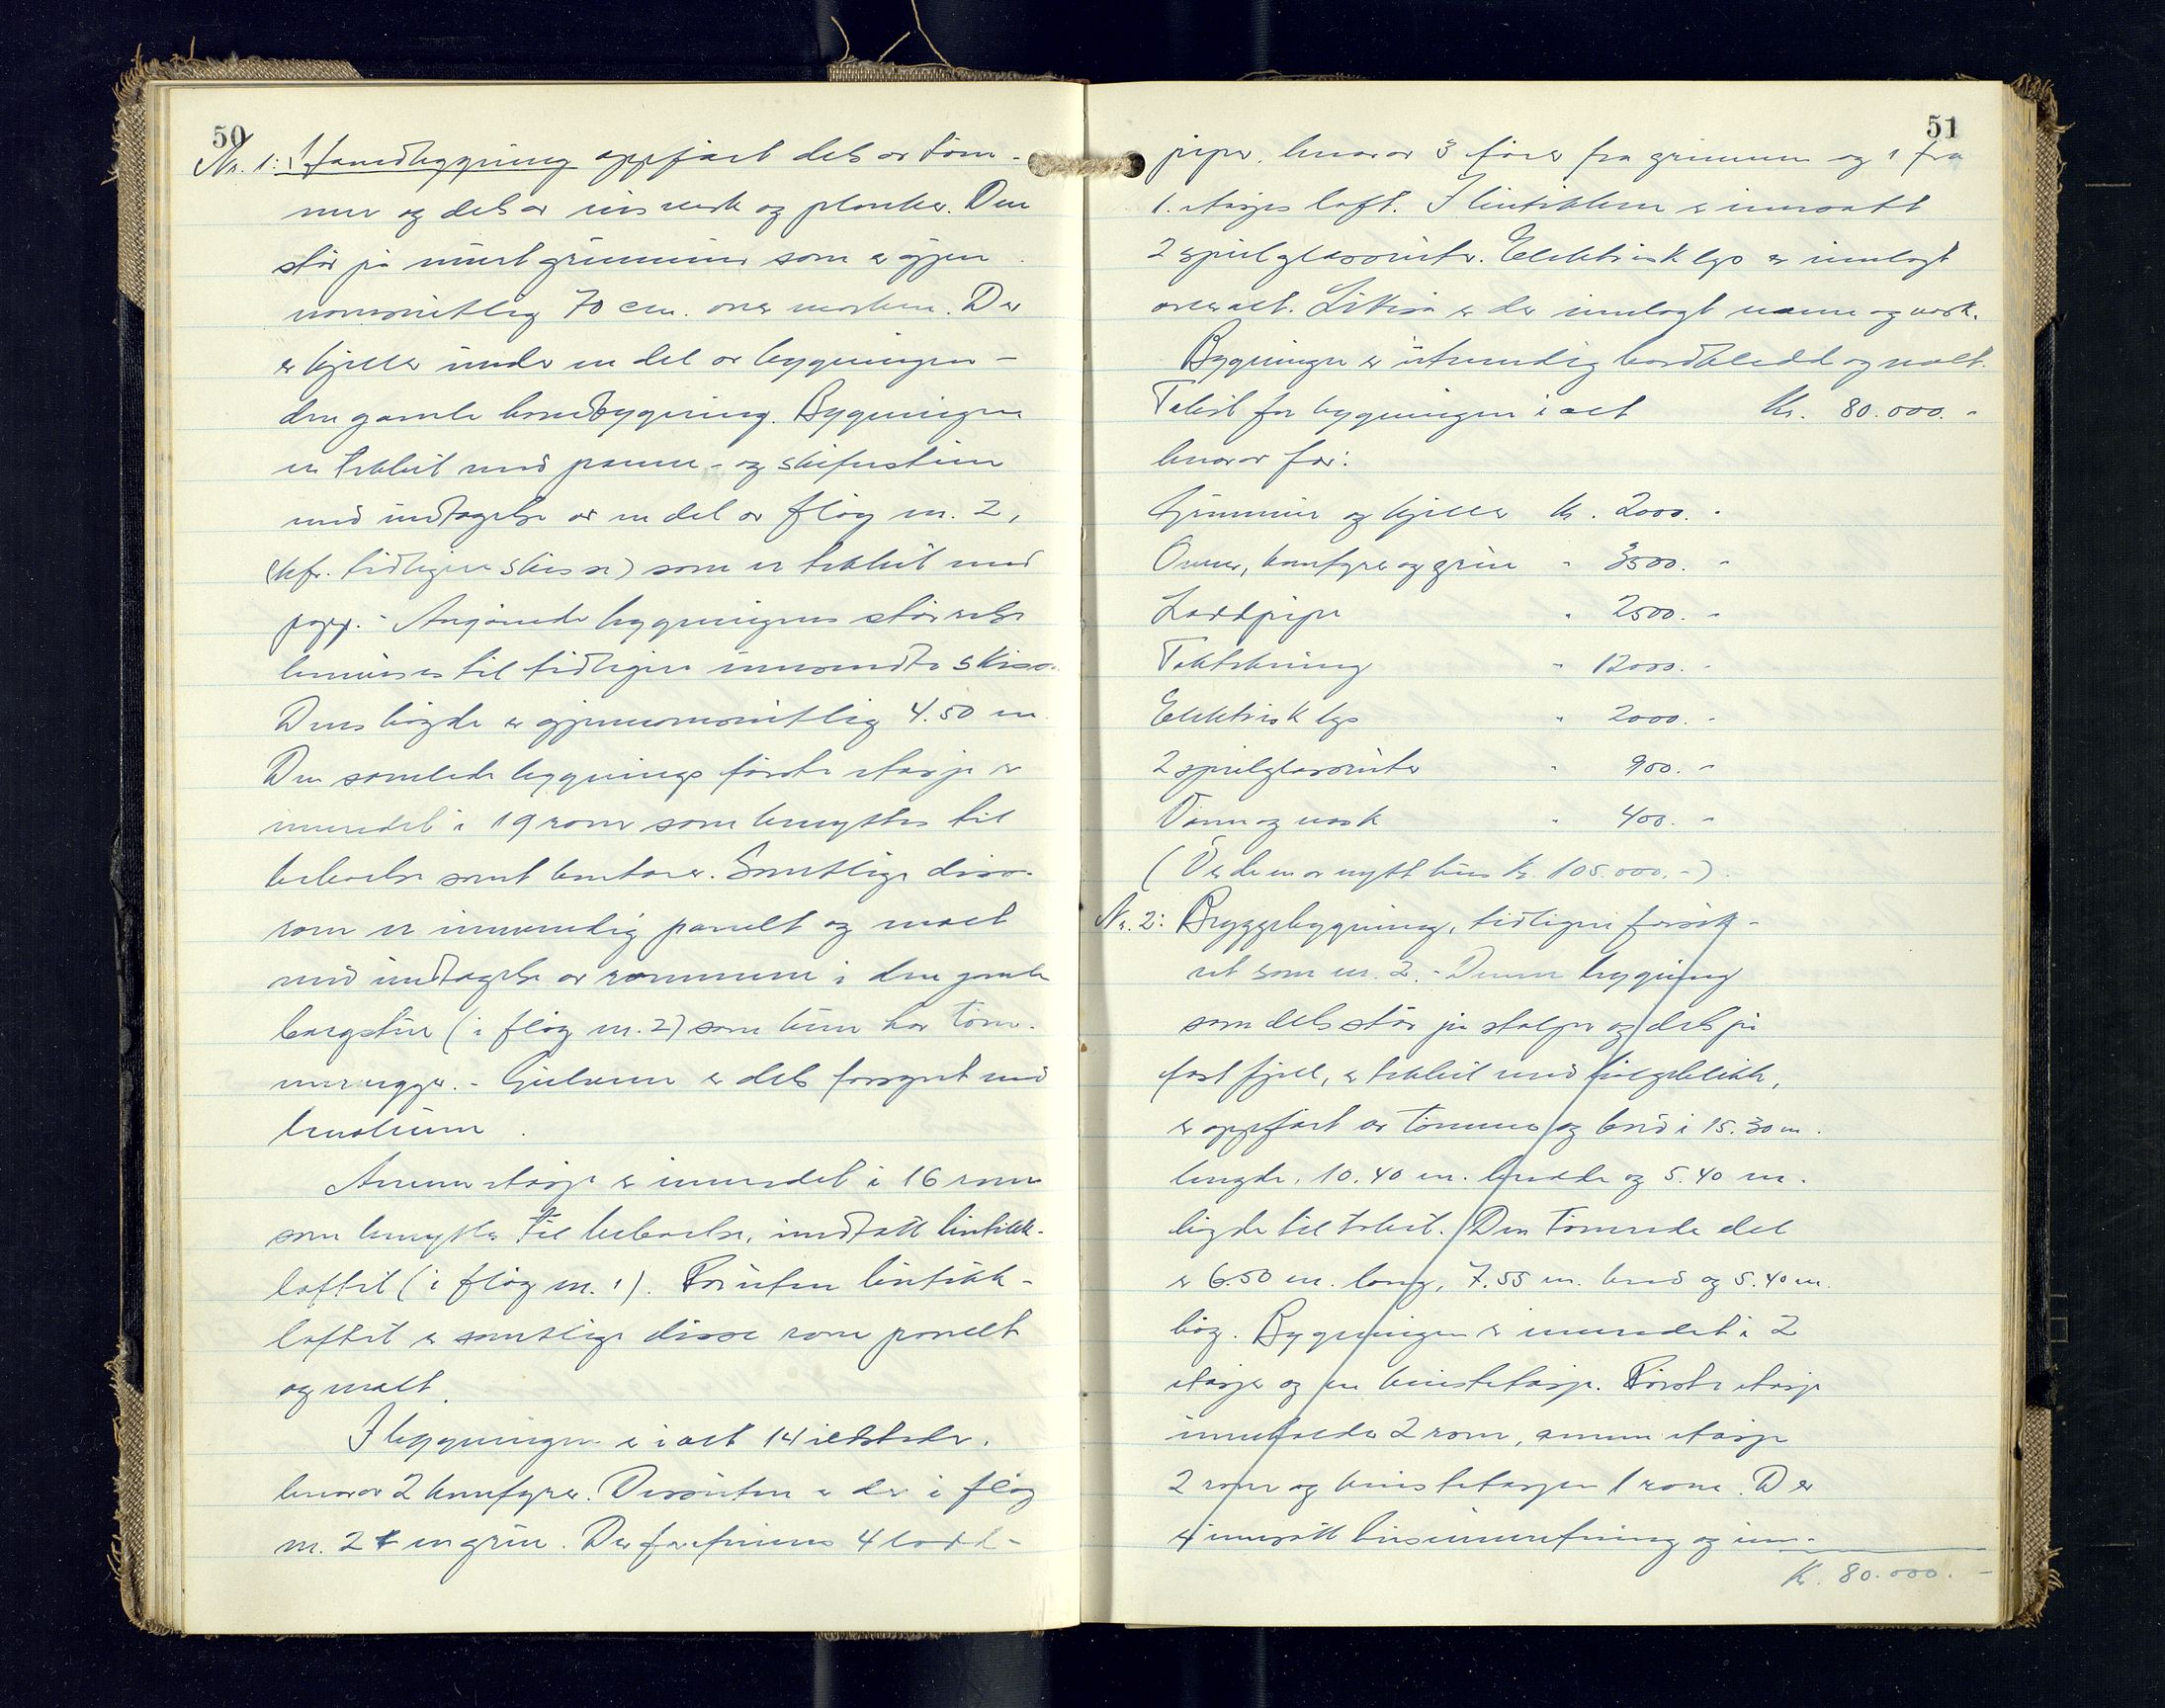 50
Nr. 1: Hovedbygning oppført dels av tøm-
mer og dels av binsverk og planker. Den
står på muret grunnmur som er gjen-
nomsnitlig 70 cm. over marken. Der
er kjeller under en del av bygningen -
den gamle hovedbygning. Bygningen
er tekket med panne- og skifersten
med undtagelse av en del av fløy nr. 2,
(kfr. tidligere skisse) som er tekket med
papp. - Angående bygningens størrelse
henvises til tidligere innsendte skisse.
Dens høyde er gjennomsnitlig 4.50 m.
Den samlede bygnings første etasje er
innredet i 19 rom som benyttes til
beboelse samt kontorer. Samtlige disse
rom er innvendig panelt og malt
med undtagelse av rommene i den gamle
borgstue (i fløy nr. 2) som kun har tøm-
mervegger. - Gulvene er dels forsynt med
linoleum.
Annen etasje er innredet i 16 rom
som benyttes til beboelse, undtatt butikk-
loftet (i fløy nr. 1). Foruten butikk-
loftet er samtlige disse rom panelt
og malt.
I bygningen er i alt 14 ildsteder,
hvorav 2 komfyrer. Dessuten er der i fløy
nr. 2 en grue. Der forefinnes 4 lodd-
51
piper, hvorav 3 fører fra grunnen og 1 fra
1. etasjes loft. I butikken er innsatt
2 speilglassruter. Elektrisk lys er innlagt
overalt. Likeså er der innlagt vann og vask.
Bygningen er utvendig bordkledd og malt.
Takst for bygningen i alt Kr. 80.000. -
hvorav for:
Grunnmur og kjeller kr. 2000. -
Ovner, komfyrer og grue " 3500. -
Loddpiper " 2500. -
Taktekning " 12000. -
Elektrisk lys " 2000. -
2 speilglassruter " 900. -
Vann og vask " 400. -
(Verdien av nytt hus kr. 105.000. -).
Nr. 2: Bryggebygning, tidligere forsik-
ret som nr. 2. - Denne bygning
som dels står på stolper og dels på
fast fjell, er tekket med bølgeblikk,
er oppført av tømmer og bord i 15.30 m.
lengde, 10.40 m. bredde og 5.40 m.
høyde til taket. Den tømrede del
er 6.50 m. lang, 7.55 m. bred og 5.40 m.
høy. Bygningen er innredet i 2
etasjer og en kvistetasje. Første etasje
inneholder 2 rom, annen etasje
2 rom og kvistetasjen 1 rom. Der
er innsatt og inn-
Kr. 80.000. -